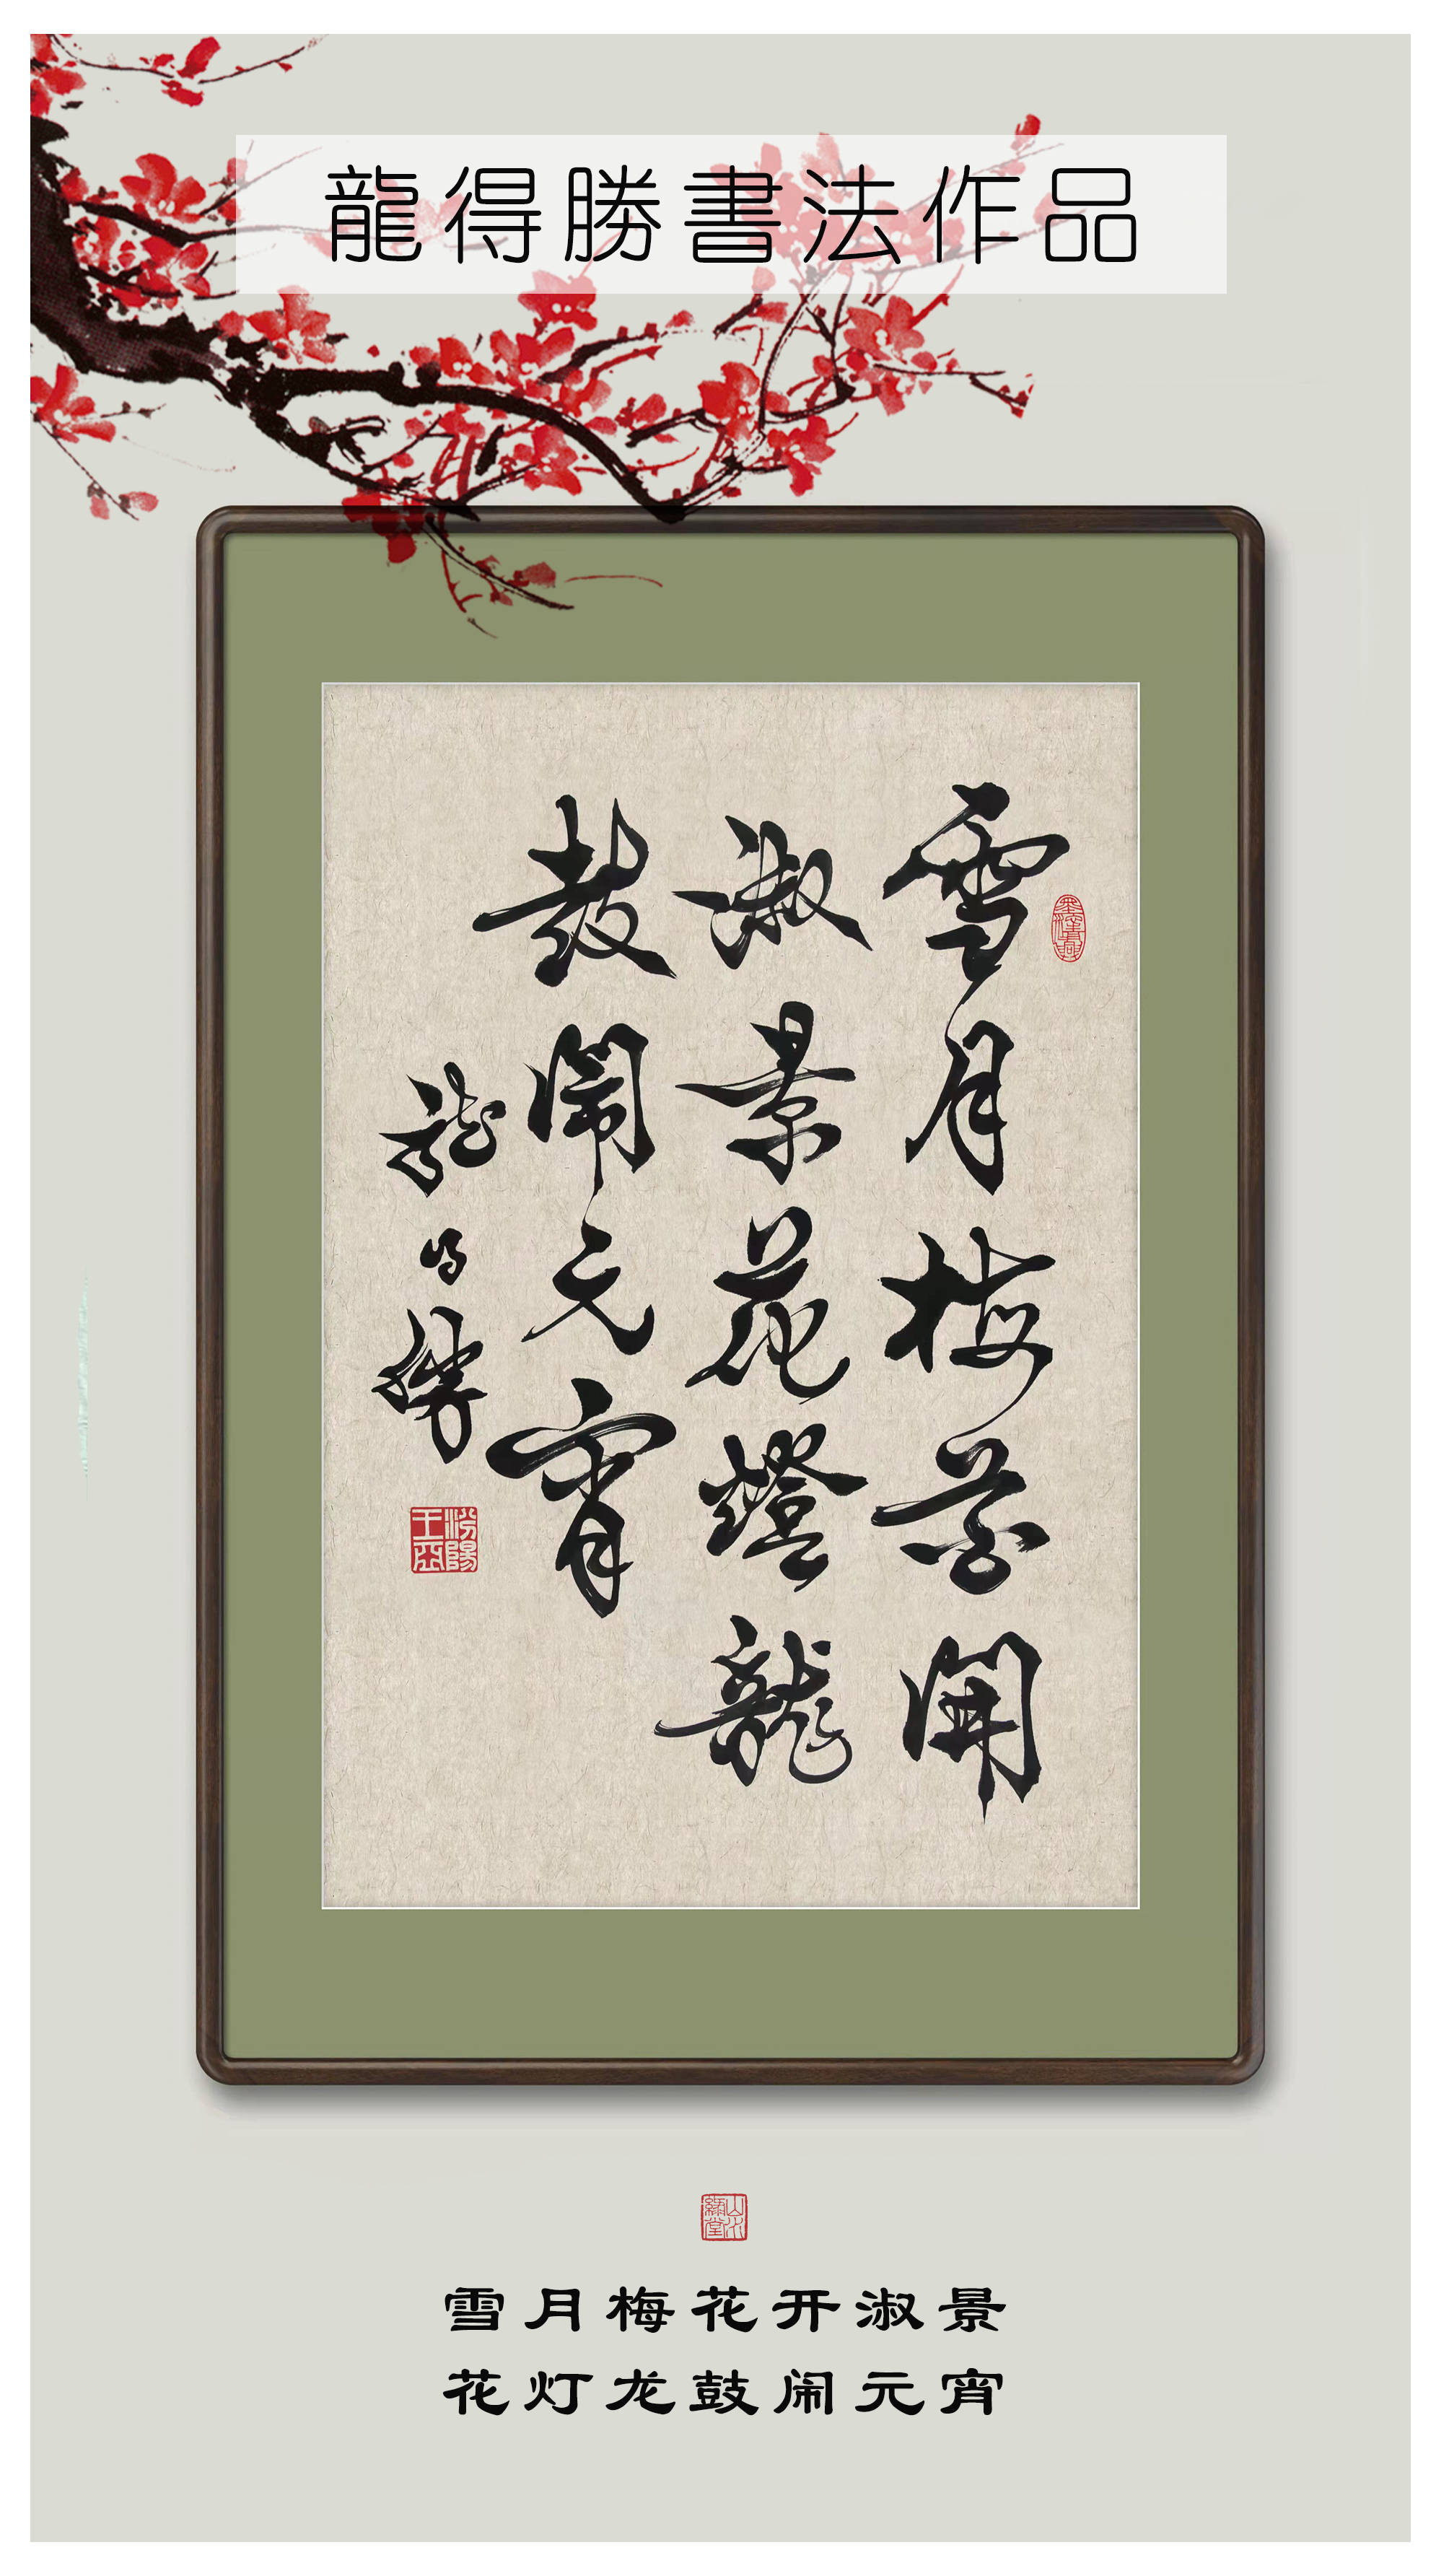 龍得勝書法作品
雪月梅花開
淑景花燈龍
鼓鬧元宵
龍得勝
雪月梅花开淑景
花灯龙鼓闹元宵